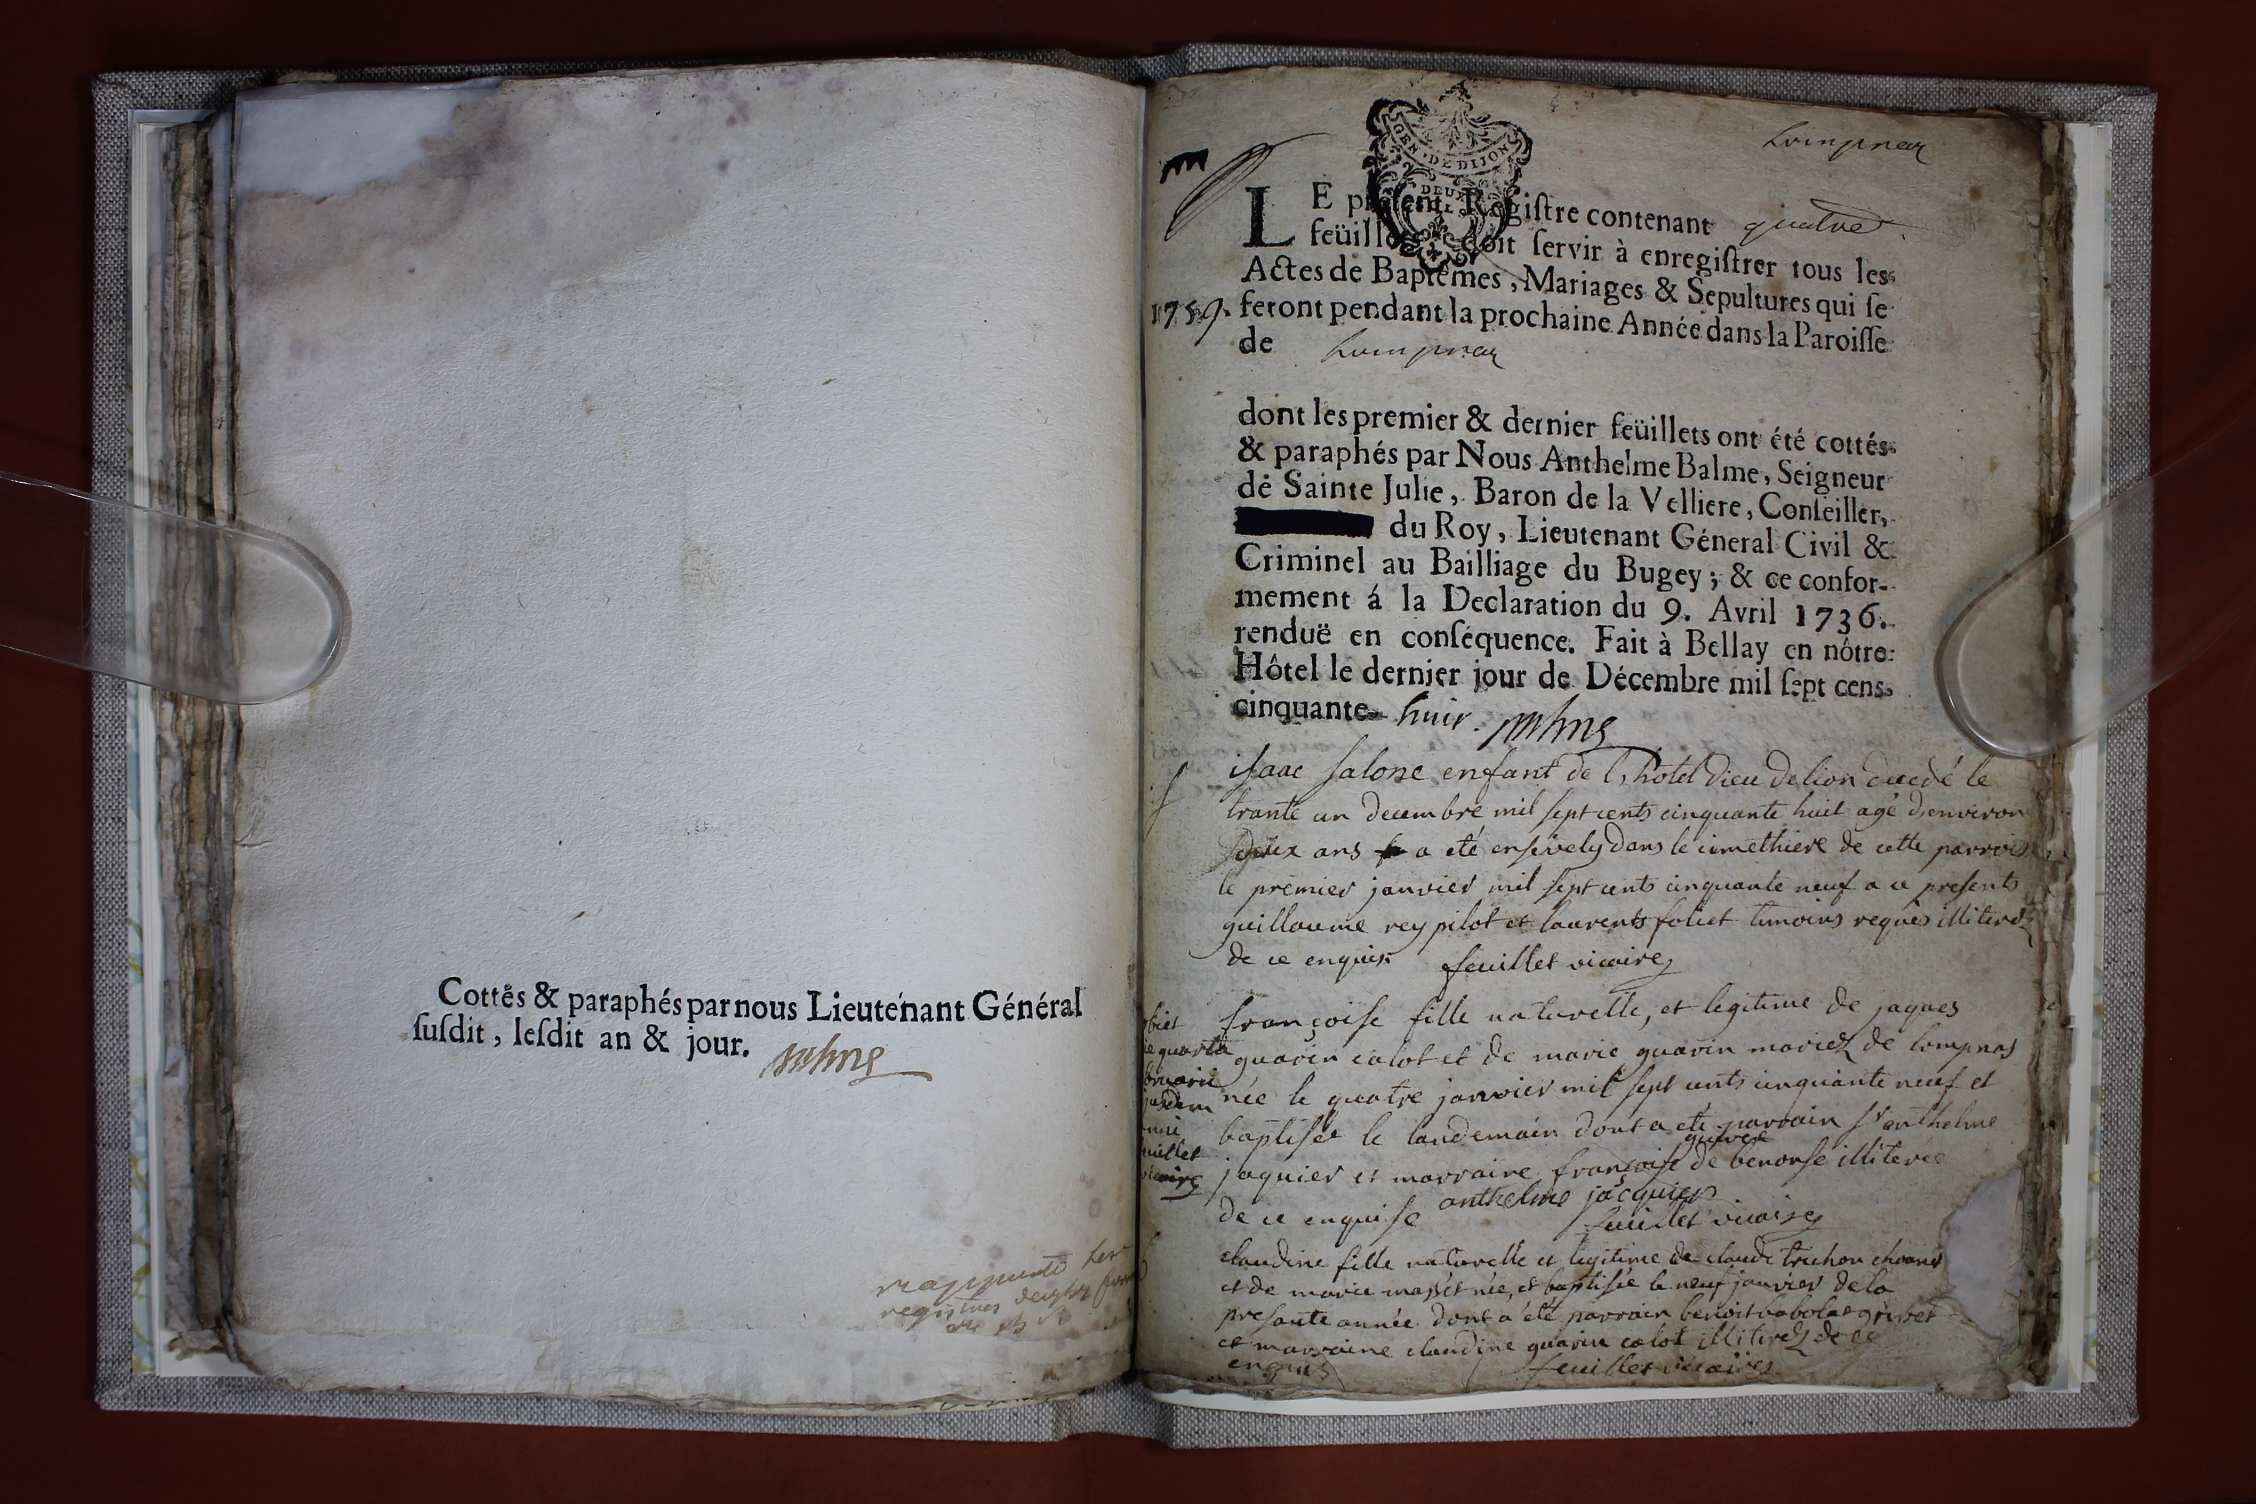 Cottés & paraphés par nous Lieutenant Général
susdit, lesdit an & jour.
registres
GEN. DE DIJON
DEUX
Lompnas
LE present Registre contenant quatre
feüillets doit servir à enregistrer tous les
Actes de Baptêmes, Mariages & Sepultures qui se
1759. feront pendant la prochaine Année dans la Paroisse
de Lompnas
dont les premier & dernier feüillets ont été cottés
& paraphés par Nous Anthelme Balme, Seigneur
de Sainte Julie, Baron de la Velliere, Conseiller,
du Roy, Lieutenant Géneral Civil &
Criminel au Bailliage du Bugey; & ce confor-
mement á la Declaration du 9. Avril 1736.
renduë en conséquence. Fait à Bellay en nôtre
Hôtel le dernier jour de Décembre mil sept cens
cinquante huit.
isaac salone enfant de l'hotel dieu de lion decedé le
trante un decembre mil sept cents cinquante huit agé d'environ
deux ans a eté ensevely dans le cimethiere de cette parroisse
le premier janvier mil sept cents cinquante neuf a ce presents
guillaume rey pilot et laurents foliet temoins requis illiterez
de ce enquis feuillet vicaire
françoise fille naturelle, et legitime de jaques
guarin calot et de marie guarin mariez de lompnas
née le quatre janvier mil sept cents cinquante neuf et
baptisée le landemain dont a eté parrain sr anthelme
jaquier et marraine françoise de benonse illiteree
de ce enquise anthelme jacquier
feuillet vicaire
claudine fille naturelle et legitime de claude truchon
et de marie massit née, et baptisée le neuf janvier de la
presante année dont a été parrain benoit babolat grivet
et marraine claudine guarin calot illiterez de ce
enquis feuillet vicaire